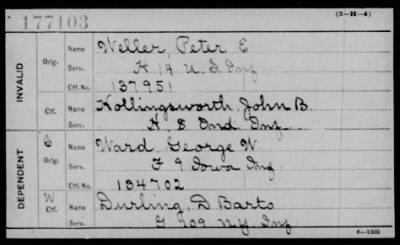 177103
(3-H-4)
INVALID
Orig.
Name Weller, Peter E
Serv. H 14 U.S. Inf
Ctf. No. 137951
Ctf.
Name Hollingsworth, John B.
Serv. H. 8 Ind Inf
DEPENDENT
Orig.
Name Ward, George W
Serv. F 9 Iowa Inf
Ctf. No. 134702
W
Ctf.
Name Durling, D Barto
Serv. G 109 N.Y. Inf